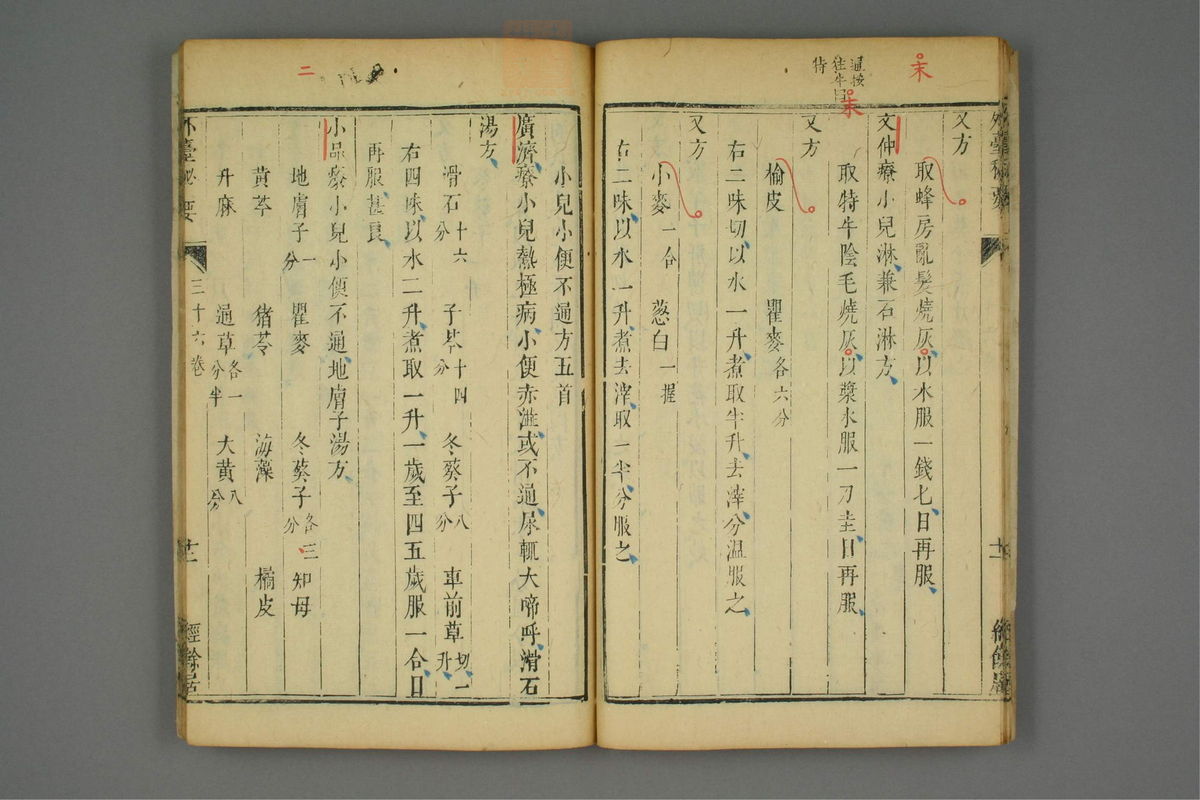 末
末
又方
取蜂房亂髮燒灰以水服一錢匕日再服
文仲療小兒淋兼石淋方
取特牛陰毛燒灰以漿水服一刀圭日再服
又方
榆皮 瞿麥各六分
右二味切以水一升煮取半升去滓分温服之
又方
小麥一合 葱白一握
右二味以水一升煮去滓取一半分服之
二
小兒小便不通方五首
廣濟療小兒熱極病小便赤澁或不通尿輒大啼呼滑石
湯方
滑石十六分 子芩十四分 冬葵子八分 車前草切一升
右四味以水二升煮取一升一歲至四五歲服一合日
再服甚良
小品療小兒小便不通地膚子湯方
地膚子一分 瞿麥 冬葵子各三分 知母
黄芩 猪苓 海藻 橘皮
升麻 通草各一分半 大黄八分
外臺秘要 三十六卷 十二 經餘居